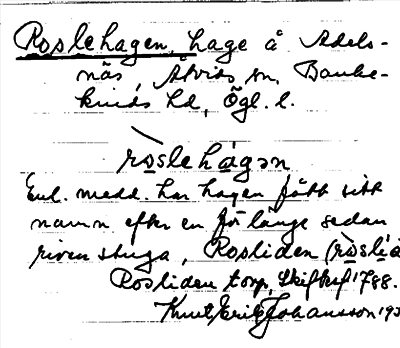 Roslehagen, hage å Adels-
näs, Åtvids sn, Banke-
kinds hd, Ögl. l.
ròslehágən
Enl. medd. har hagen fått sitt
namn efter en för länge sedan
riven stuga, Rosliden (ròslía
Rosliden torp, Skifteskf 1788.
Knut Erik Johansson 193